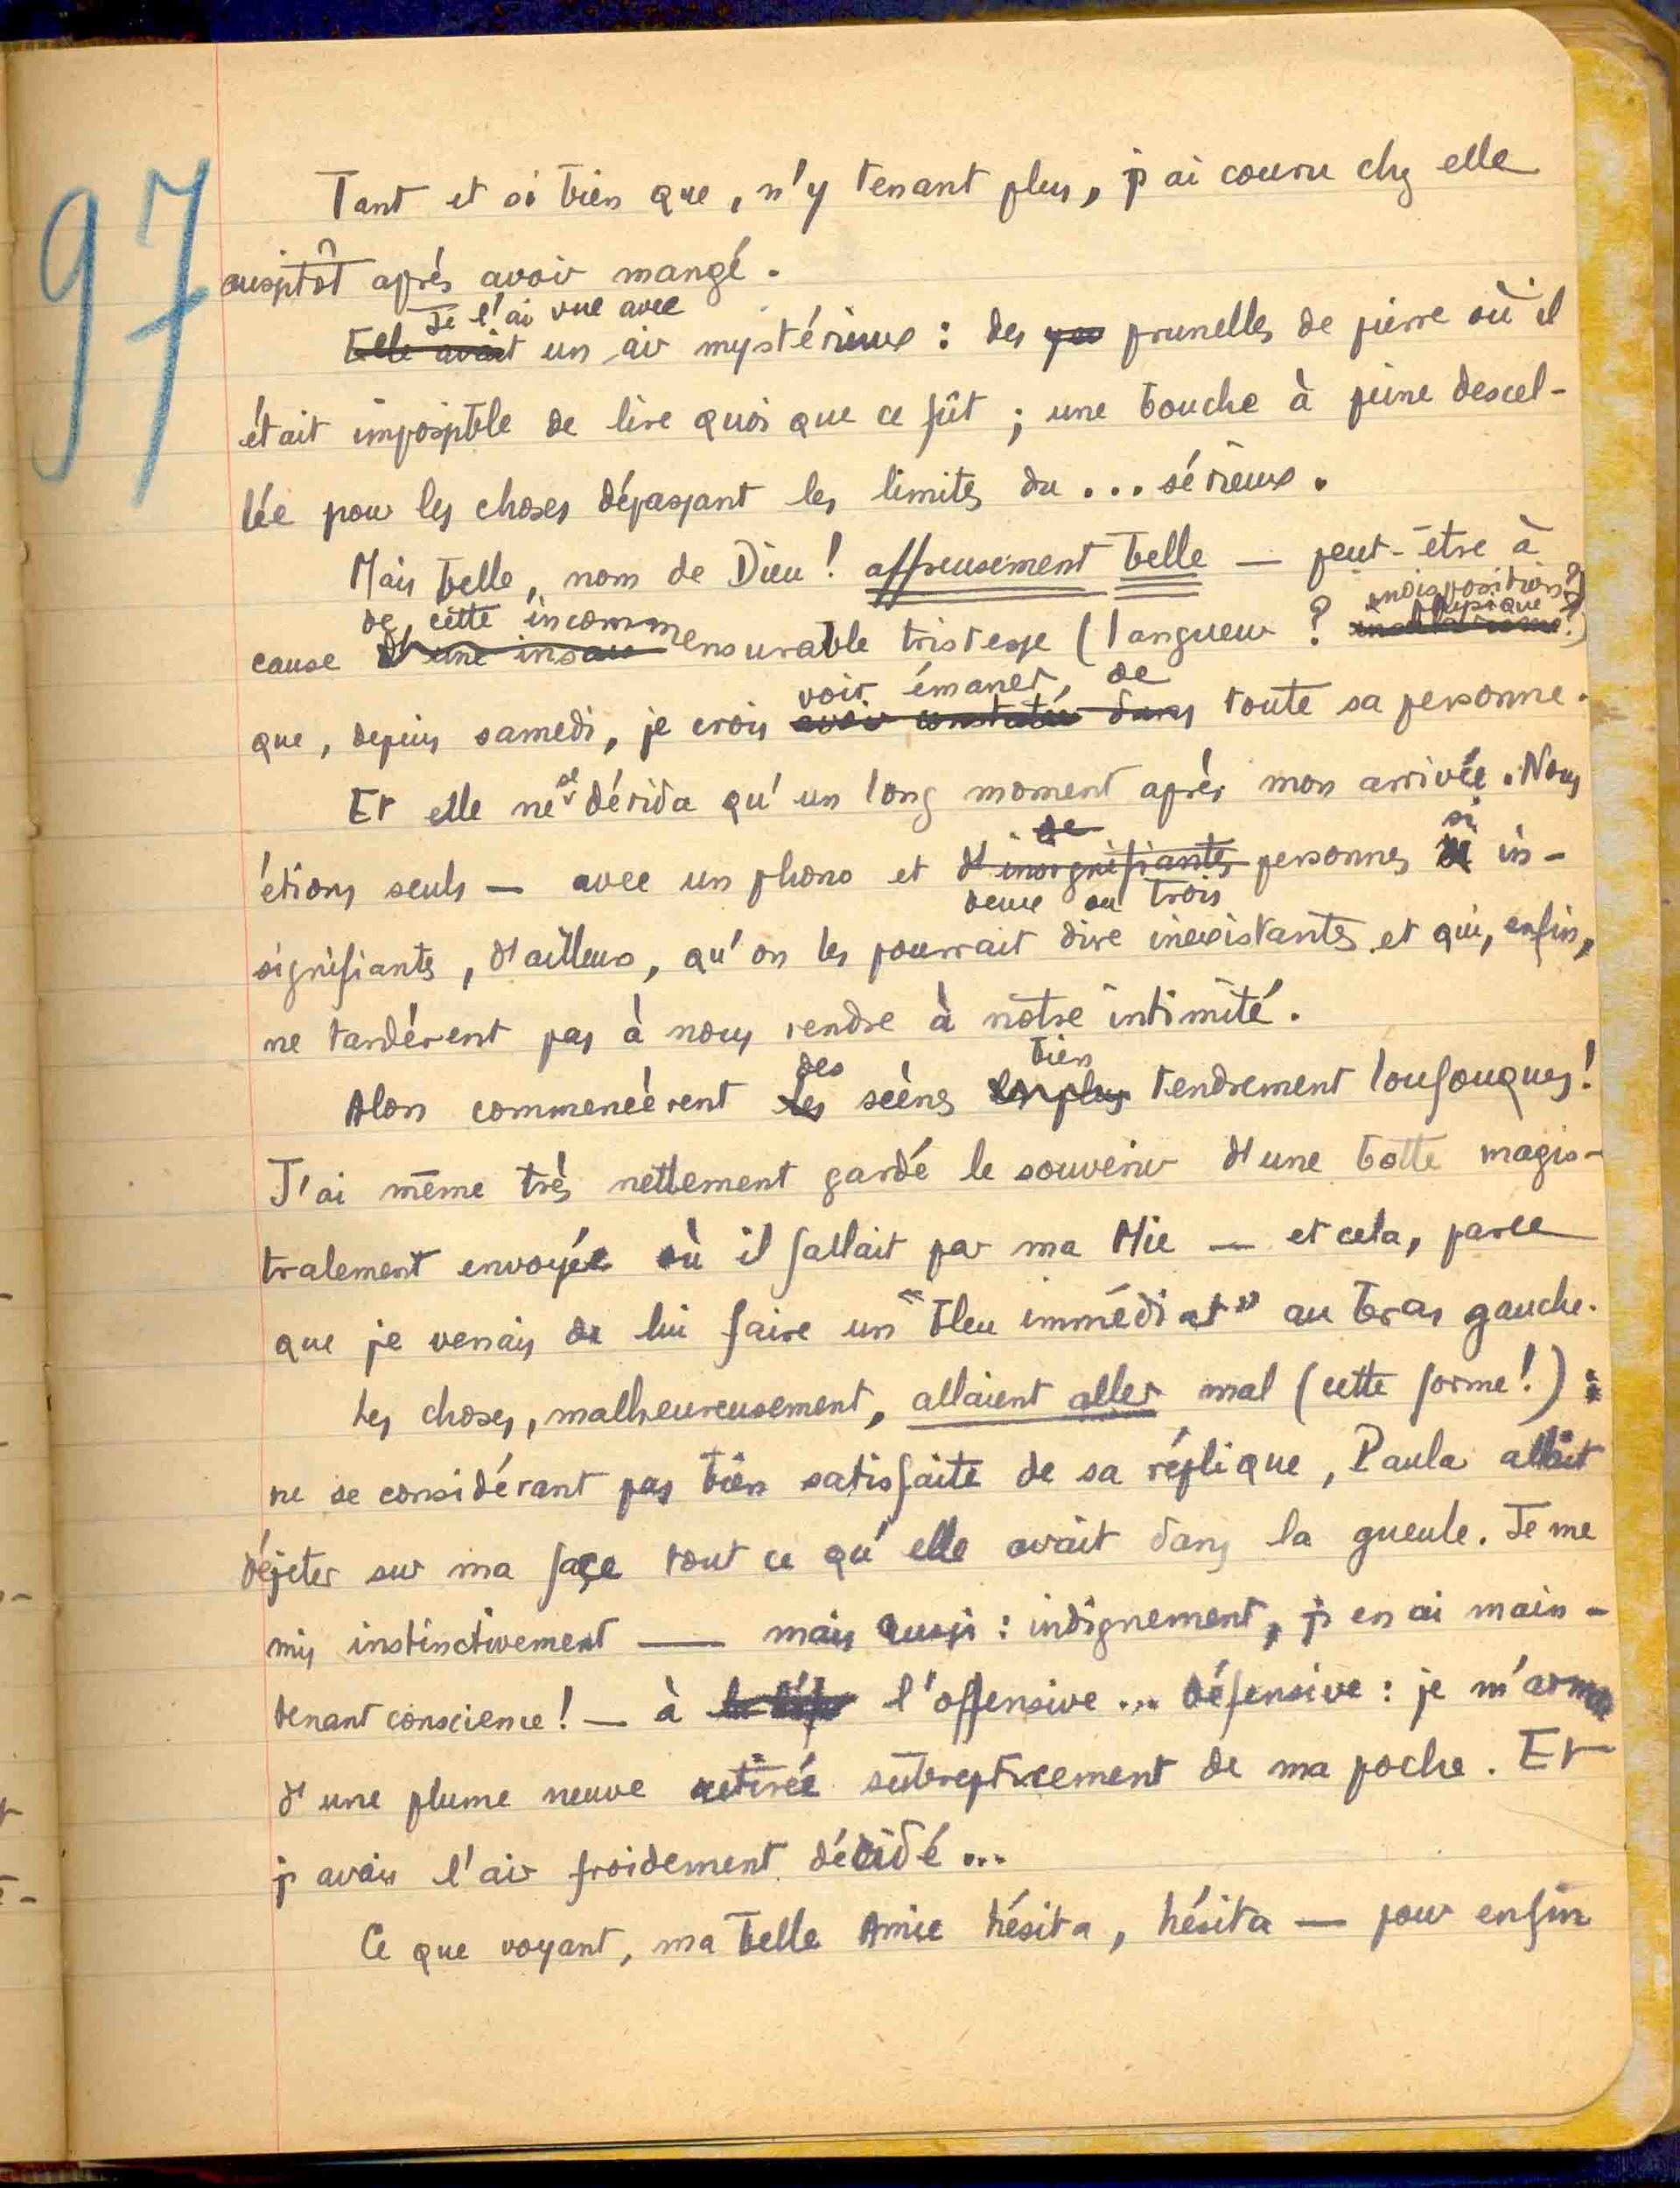 97
Tant et si bien que, n'y tenant plus, j'ai couru chez elle
aussitôt après avoir mangé.
Je l'ai vue avec
Elle avait un air mystérieux : des yeu prunelles de pierre où il
était impossible de lire quoi que ce fût ; une bouche à peine descel-
lée pour les choses dépassant les limites du... sérieux.
Mais belle, nom de Dieu ! affreusement belle — peut-être à
de cette incomm indisposition physique ?)
cause d'une ensurable tristesse (langueur ?
voir émaner, de
que, depuis samedi, je crois avoir constatée dans toute sa personne.
se
Et elle ne dérida qu'un long moment après mon arrivée. Nous
de si
étions seuls — avec un phono et d'insignifiantes personnes in-
deux ou trois
signifiants, d'ailleurs, qu'on les pourrait dire inexistantes et qui, enfin,
ne tardèrent pas à nous rendre à notre intimité.
des bien
Alors commencèrent les scènes les plus tendrement loufouques !
J'ai même très nettement gardé le souvenir d'une botte magis-
tralement envoyée où il fallait par ma Mie — et cela, parce
que je venais de lui faire un "bleu immédiat" au bras gauche.
Les choses, malheureusement, allaient aller mal (cette forme !) :
ne se considérant pas bien satisfaite de sa réplique, Paula allait
déjeter sur ma face tout ce qu'elle avait dans la gueule. Je me
mis instinctivement — mais aussi : indignement, j'en ai main-
tenant conscience ! — à la défe l'offensive... défensive : je m'arme
d'une plume neuve retirée subrepticement de ma poche. Et
j'avais l'air froidement décidé...
Ce que voyant, ma belle Amie hésita, hésita — pour enfin